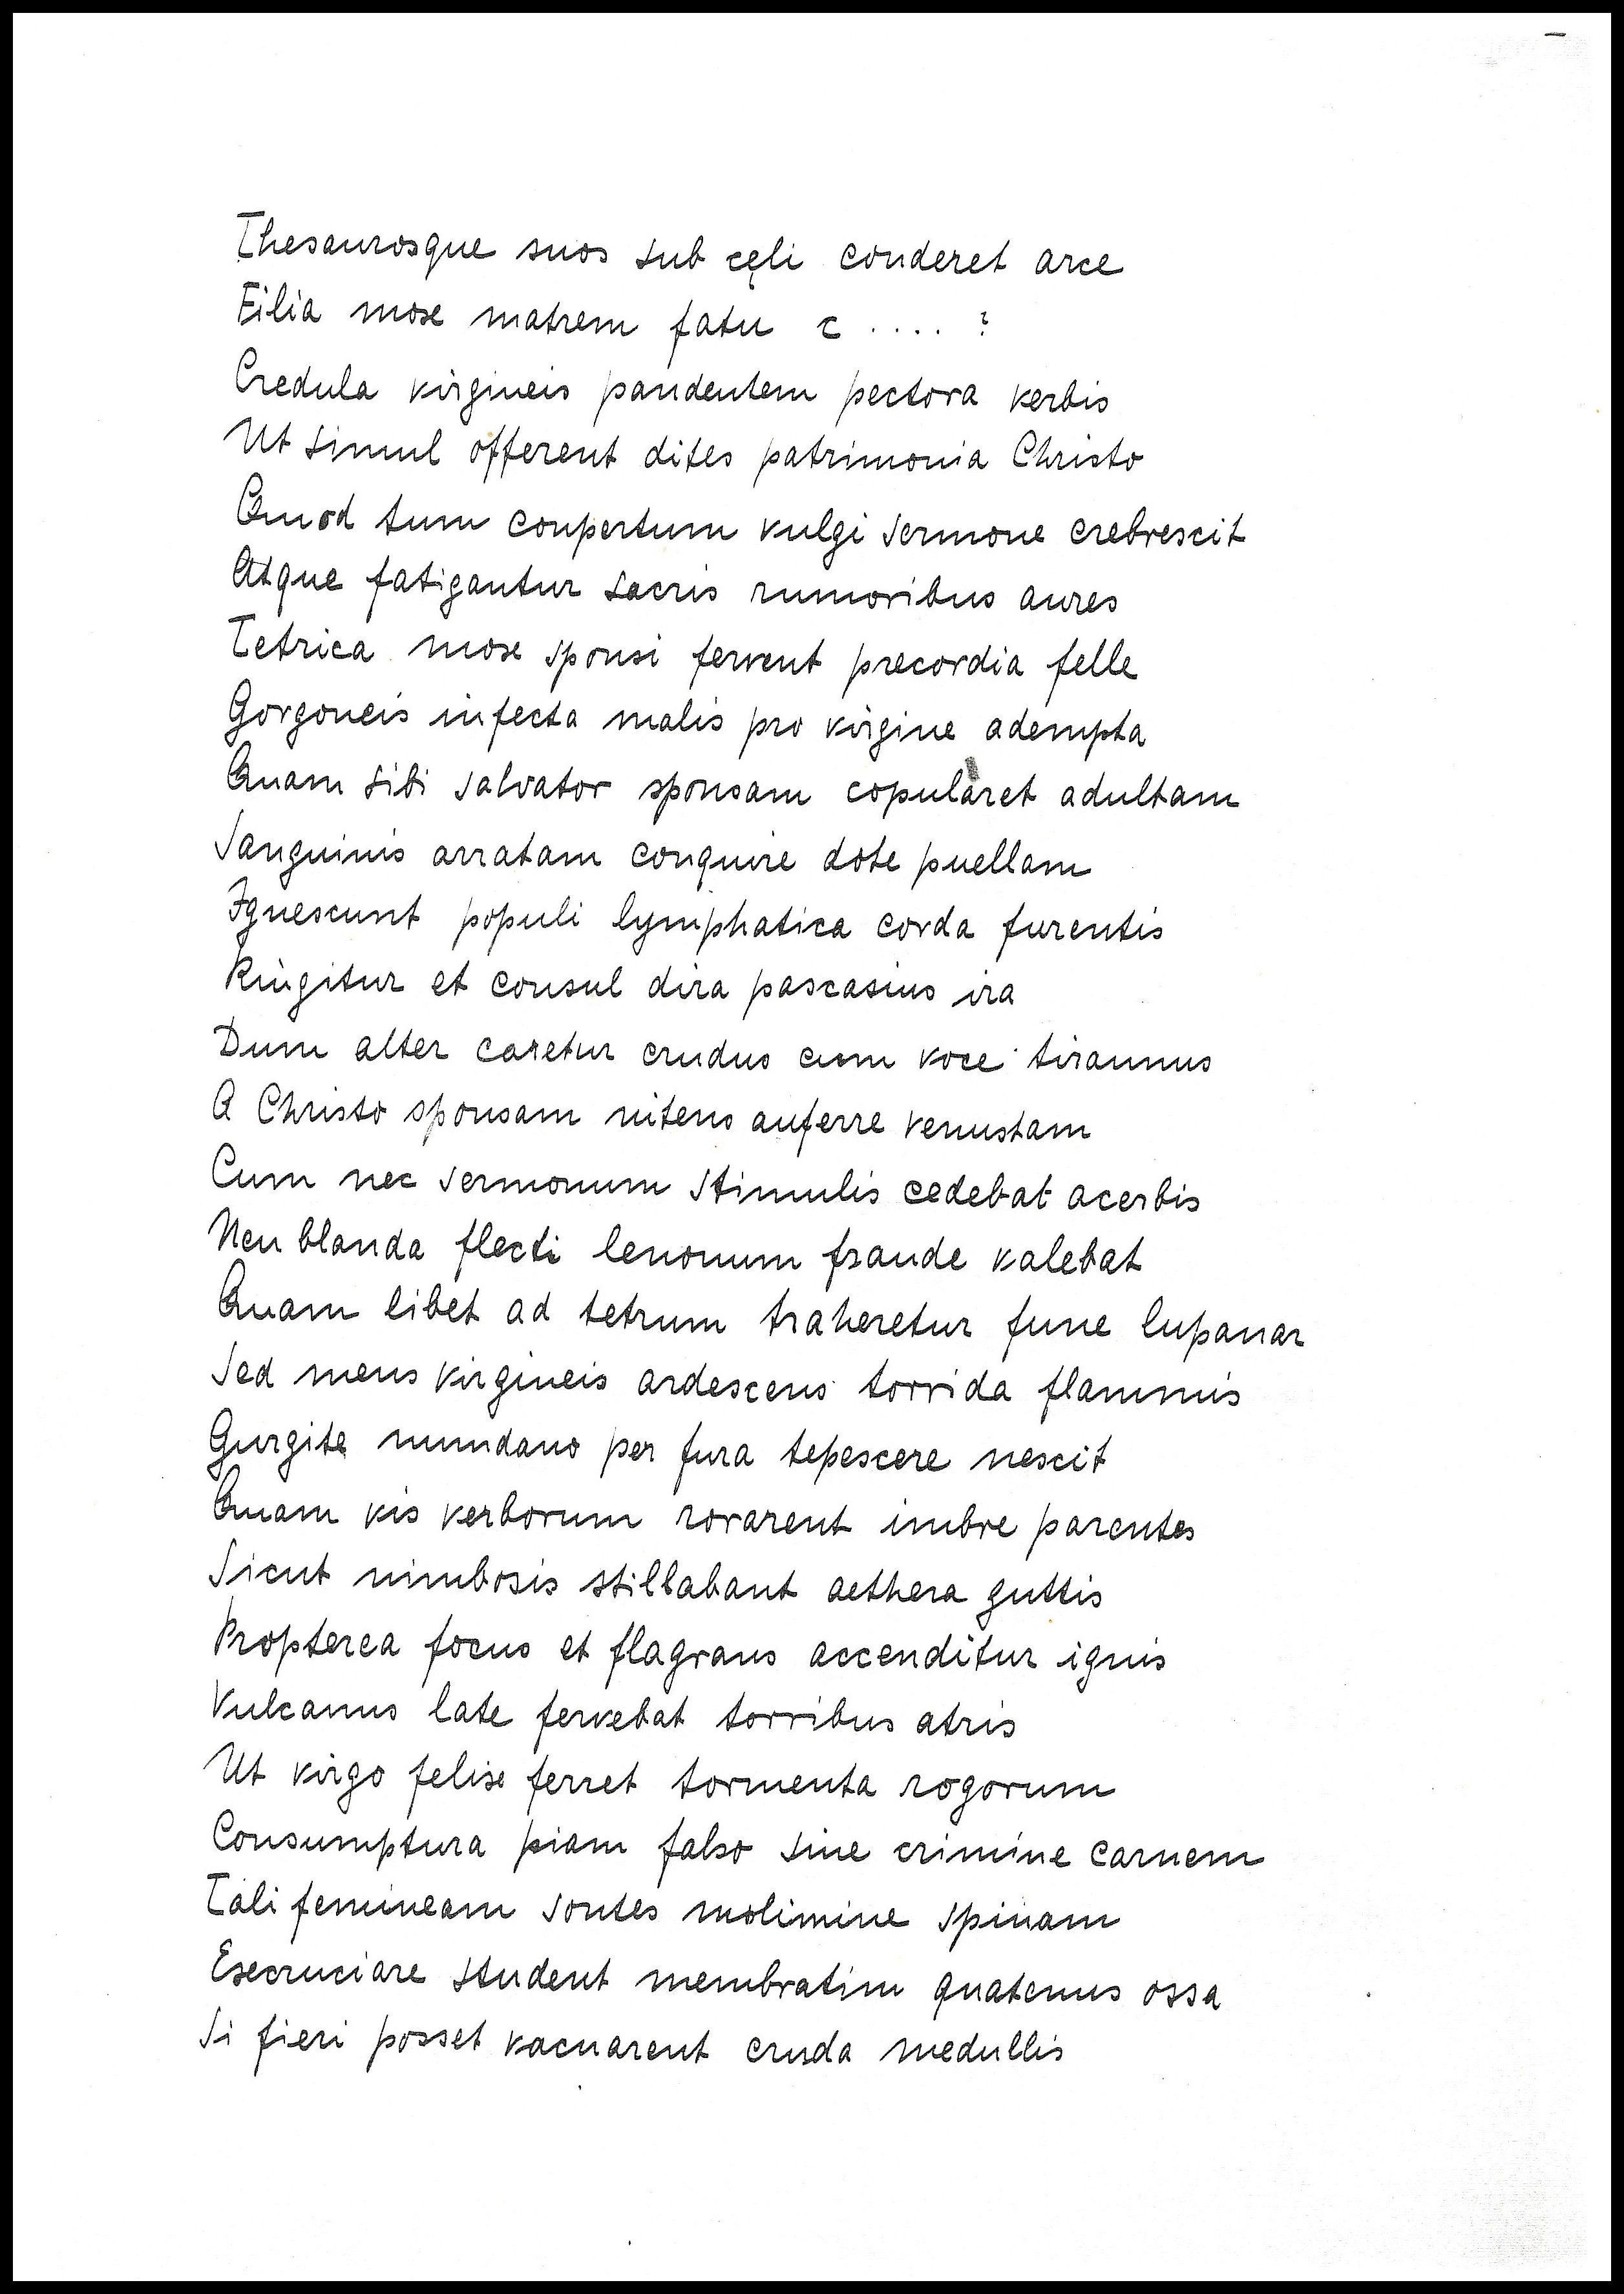 Thesaurosque suos sub cęli conderet arce
Filia mose matrem fatu c . . . . ?
Credula virgineis pandentem pectora verbis
Ut simul offerent dites patrimonia Christo
Quod tum conpertum vulgi sermone crebrescit
Atque fatigantur sacris rumoribus aures
Tetrica mose sponsi fervent precordia felle
Gorgoneis infecta malis pro virgine adempta
Quam sibi salvator sponsam copularet adultam
Sanguinis arratam conquire dote puellam
Ignescunt populi lymphatica corda furentis
Ringitur et consul dira pascasius ira
Dum alter caretur crudus cum voce tirannus
A Christo sponsam nitens auferre venustam
Cum nec sermonum stimulis cedebat acerbis
Neu blanda flecti lenonum fraude valebat
Quam libet ad tetrum traheretur fune lupanar
Sed mens virgineis ardescens torrida flammis
Gurgite mundano per fura tepescere nescit
Quam vis verborum rorarent imbre parentes
Sicut nimbosis stillabant aethera guttis
Propterea focus et flagrans accenditur ignis
Vulcanus late fervebat torribus atris
Ut virgo felise ferret tormenta rogorum
Consumptura piam falso sine crimine carnem
Tali femineam sontes molimine spinam
Esecruciare student membratim quatenus ossa
Si fieri posset vacuarent cruda medullis